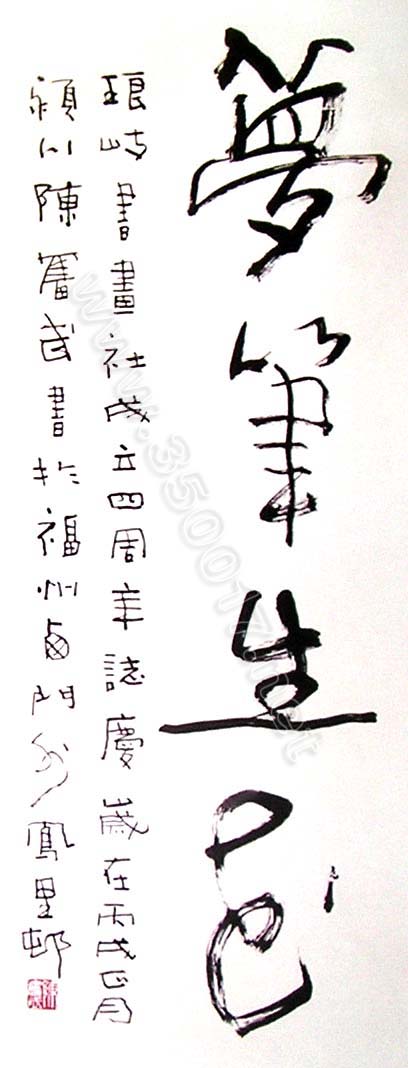 夢筆生花
琅岐書畫社成立四周年誌慶歲在丙戌正月
潁川陳奮武書於福州西門外鳳里邨
www.350017.net